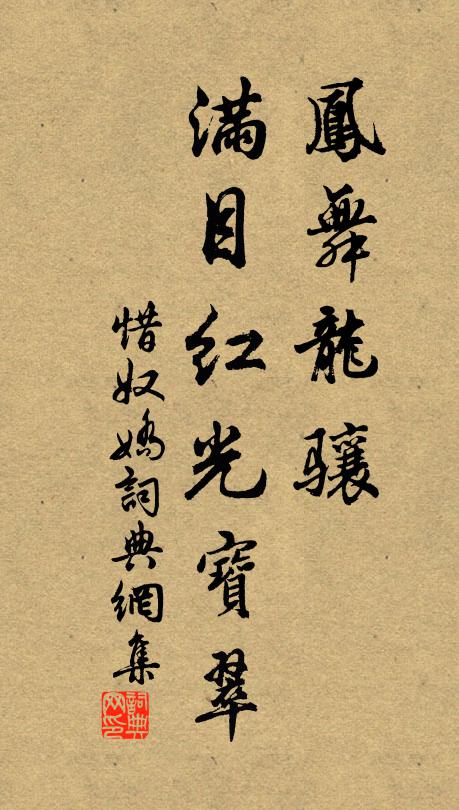 鳳舞龍驤
滿目紅光寶翠
惜奴嬌詞典網集
詞典網印